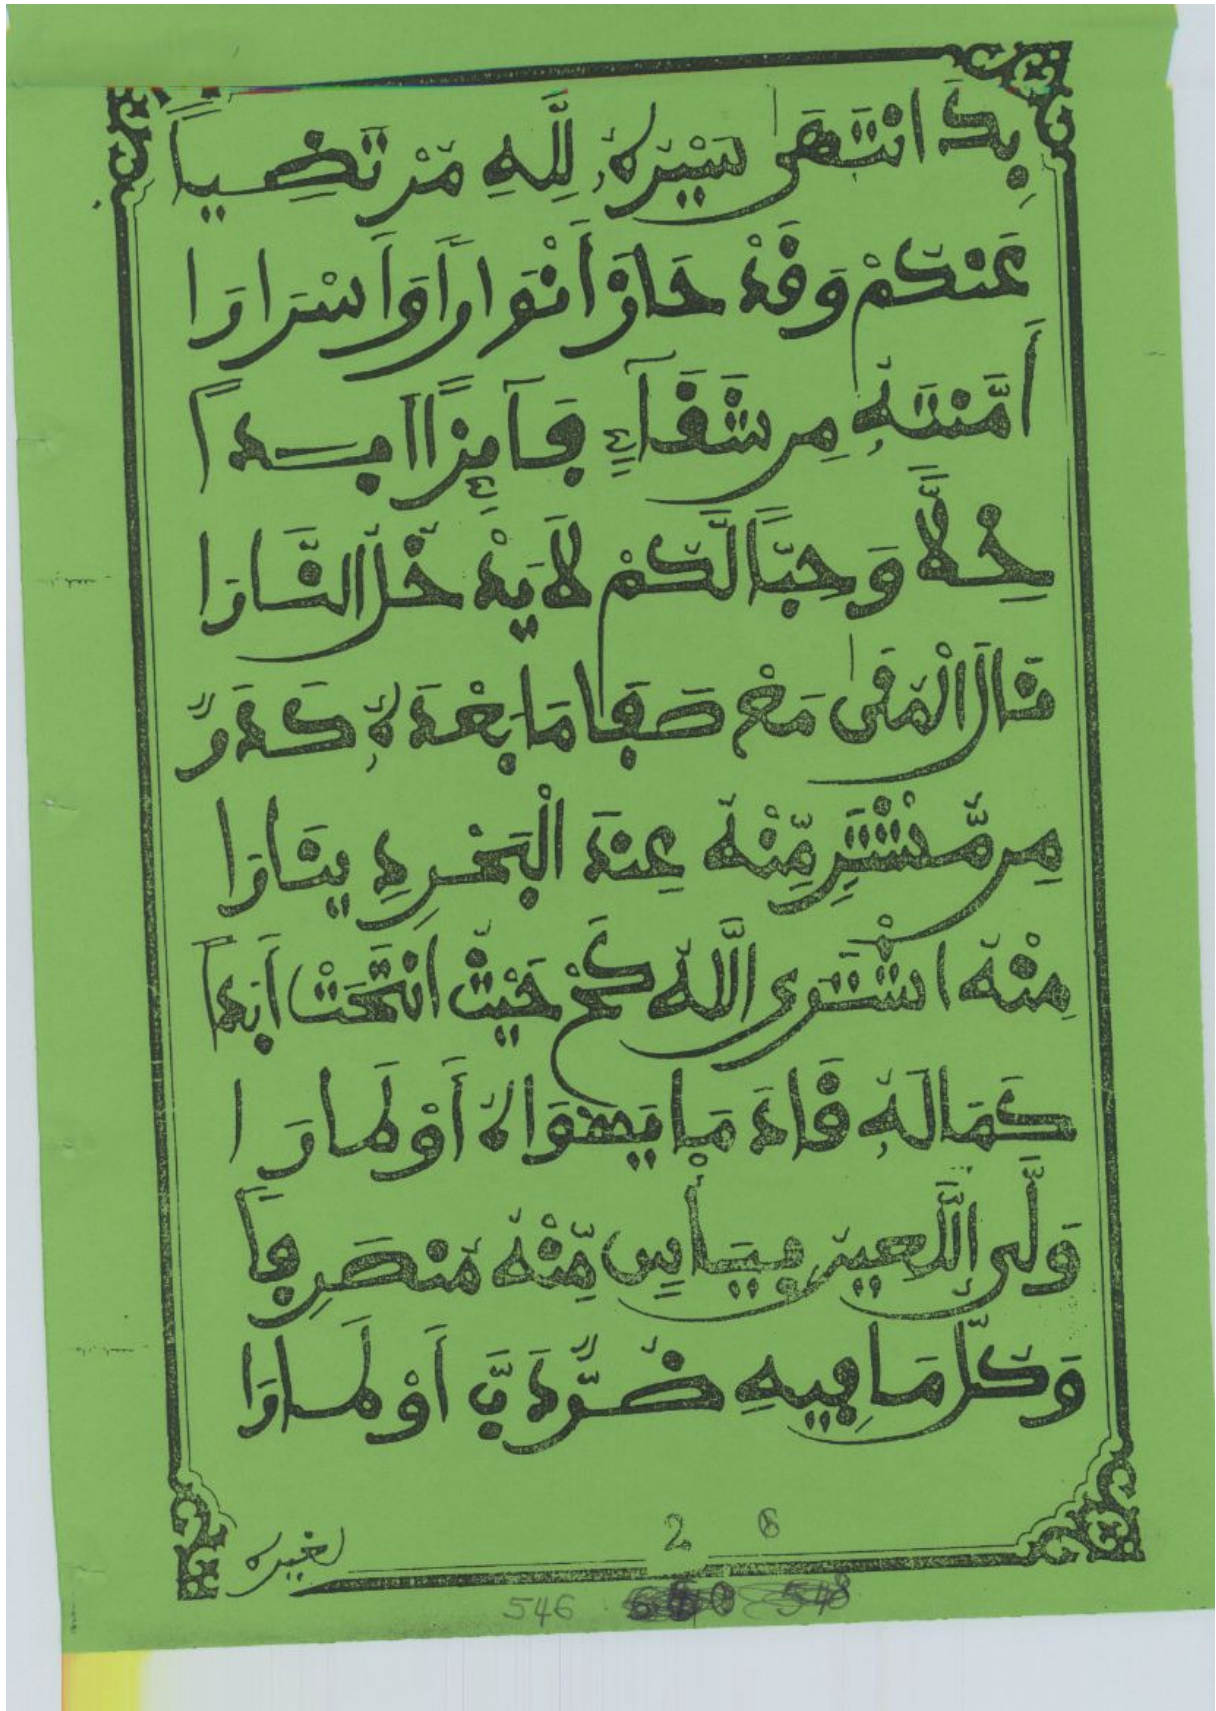 بِكَ انْتَهَى سَيْرُهُ لِلَّهِ مَرْتَضِيًا
عَنكُمْ وَقَدْ حَازَ أَنْوَارًا وَأَسْرَارَا
أَمَّنتَهُ مِن شَقَآءٍ فَآئِزًا أَبَدًا
خِلًّا وَحِبًّا لَّكُمْ لَا يَدْخُلُ النَّارَا
نَالَ الْمُنَى مَعْ صَفَا مَا بَعْدَهُ كَدَرٌ
مِن مُّشْتَرٍ مِّنْهُ عِندَ الْبَحْرِ دِينَارَا
مِنْهُ اشْتَرَى اللَّهُ كُمْ حَيْثُ انتَحَتْ أَبَدًا
كَمَا لَهُ قَادَ مَا يَهْوَاهُ أَوْطَارَا
وَلَّى اللَّعِينُ بِيَأْسٍ مِّنْهُ مُنصَرِفًا
وَكُلُّ مَا فِيهِ ضُرٌّ دَبَّ أَوْ طَارَا
لغيره
2 6
546 548